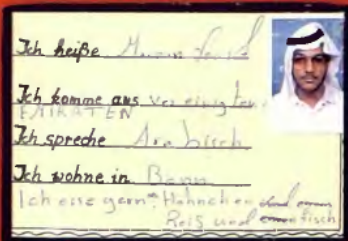 Ich heiße
Ich komme aus vereinigten
EMIRATEN
Ich spreche Arabisch
Ich wohne in Bonn
Ich esse gern: Hähnchen und
Reis und fisch